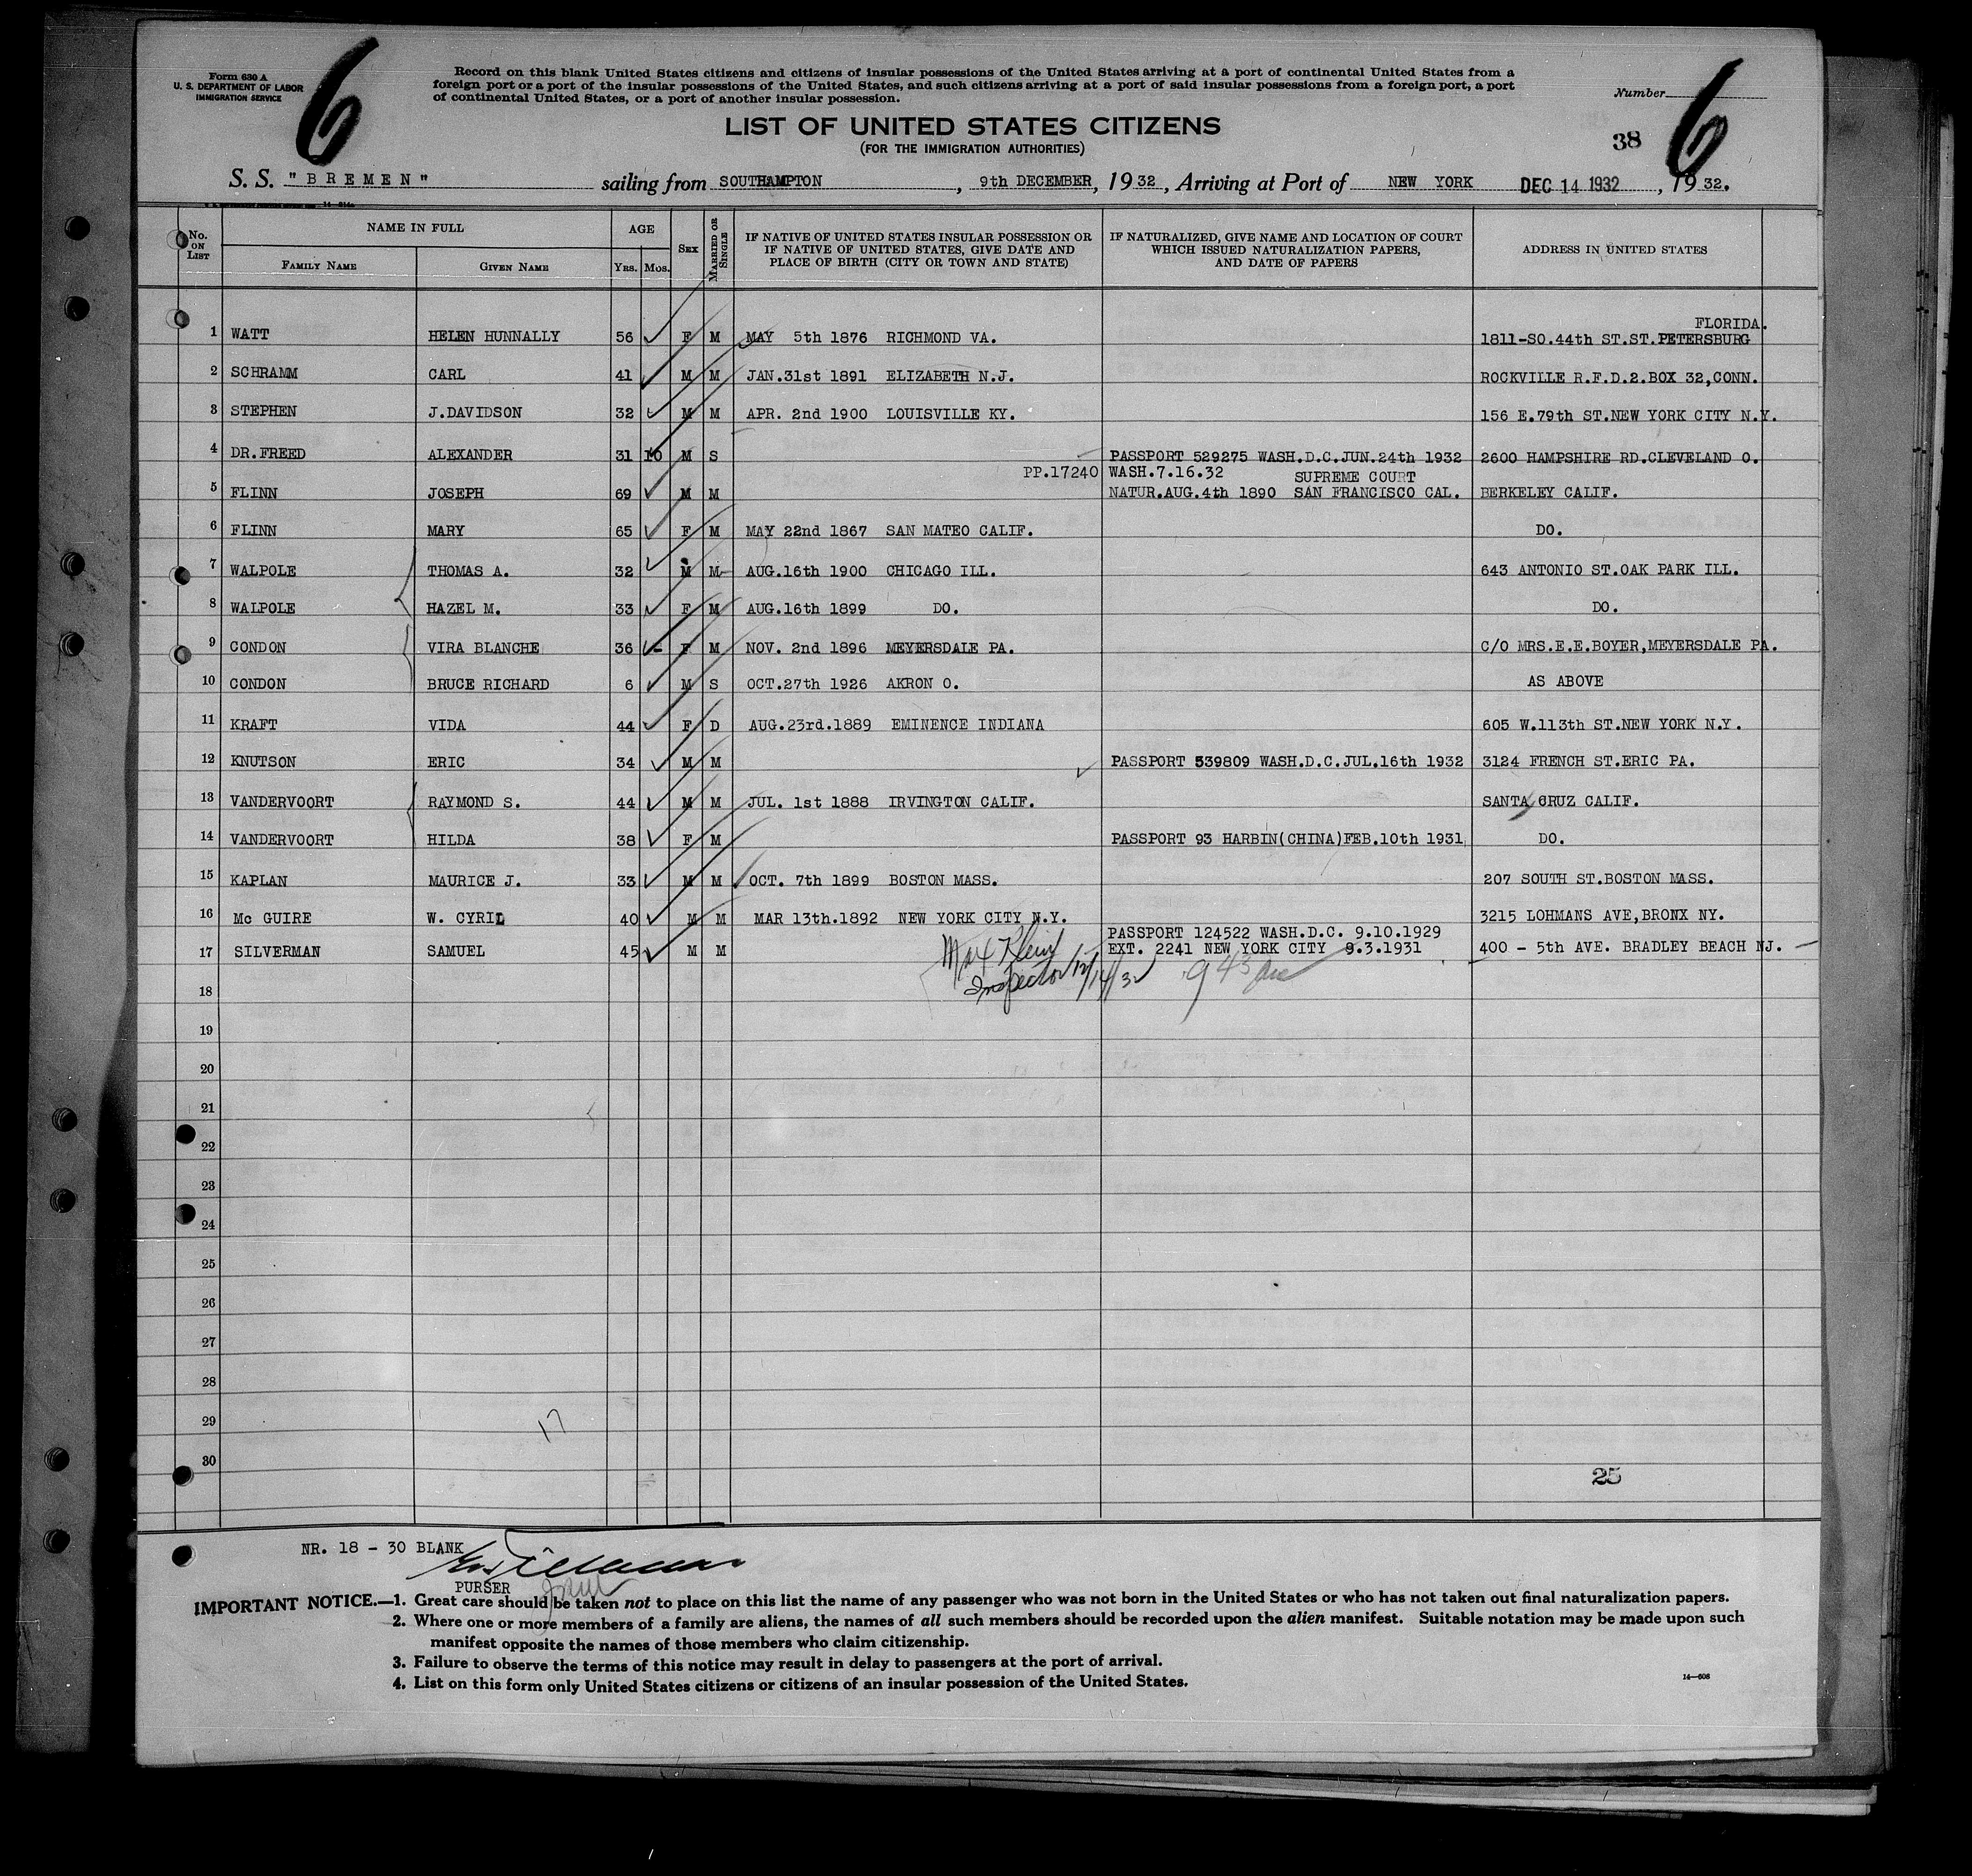 Form 630 A
U. S. DEPARTMENT OF LABOR
IMMIGRATION SERVICE
6
Record on this blank United States citizens and citizens of insular possessions of the United States arriving at a port of continental United States from a
foreign port or a port of the insular possessions of the United States, and such citizens arriving at a port of said insular possessions from a foreign port, a port
of continental United States, or a port of another insular possession.
Number
6
LIST OF UNITED STATES CITIZENS
(FOR THE IMMIGRATION AUTHORITIES)
38
S. S. "BREMEN" sailing from SOUTHAMPTON, 9th DECEMBER, 1932, Arriving at Port of NEW YORK DEC 14 1932, 1932.
No. ON LIST NAME IN FULL FAMILY NAME GIVEN NAME AGE YRS. MOS. SEX MARRIED OR SINGLE IF NATIVE OF UNITED STATES INSULAR POSSESSION OR IF NATIVE OF UNITED STATES, GIVE DATE AND PLACE OF BIRTH (CITY OR TOWN AND STATE) IF NATURALIZED, GIVE NAME AND LOCATION OF COURT WHICH ISSUED NATURALIZATION PAPERS, AND DATE OF PAPERS ADDRESS IN UNITED STATES
FLORIDA.
1 WATT HELEN HUNNALLY 56 F M MAY 5th 1876 RICHMOND VA. 1811-SO.44th ST.ST.PETERSBURG
2 SCHRAMM CARL 41 M M JAN.31st 1891 ELIZABETH N.J. ROCKVILLE R.F.D.2.BOX 32,CONN.
3 STEPHEN J.DAVIDSON 32 M M APR. 2nd 1900 LOUISVILLE KY. 156 E.79th ST.NEW YORK CITY N.Y.
4 DR.FREED ALEXANDER 31 10 M S PASSPORT 529275 WASH.D.C.JUN.24th 1932 2600 HAMPSHIRE RD.CLEVELAND O.
PP.17240 WASH.7.16.32 SUPREME COURT
5 FLINN JOSEPH 69 M M NATUR.AUG.4th 1890 SAN FRANCISCO CAL. BERKELEY CALIF.
6 FLINN MARY 65 F M MAY 22nd 1867 SAN MATEO CALIF. DO.
7 WALPOLE THOMAS A. 32 M M AUG.16th 1900 CHICAGO ILL. 643 ANTONIO ST.OAK PARK ILL.
8 WALPOLE HAZEL M. 33 F M AUG.16th 1899 DO. DO.
9 CONDON VIRA BLANCHE 36 - F M NOV. 2nd 1896 MEYERSDALE PA. C/O MRS.E.E.BOYER,MEYERSDALE PA.
10 CONDON BRUCE RICHARD 6 M S OCT.27th 1926 AKRON O. AS ABOVE
11 KRAFT VIDA 44 F D AUG.23rd.1889 EMINENCE INDIANA 605 W.113th ST.NEW YORK N.Y.
12 KNUTSON ERIC 34 M M PASSPORT 539809 WASH.D.C.JUL.16th 1932 3124 FRENCH ST.ERIC PA.
13 VANDERVOORT RAYMOND S. 44 M M JUL. 1st 1888 IRVINGTON CALIF. SANTA CRUZ CALIF.
14 VANDERVOORT HILDA 38 F M PASSPORT 93 HARBIN(CHINA)FEB.10th 1931 DO.
15 KAPLAN MAURICE J. 33 M M OCT. 7th 1899 BOSTON MASS. 207 SOUTH ST.BOSTON MASS.
16 Mc GUIRE W. CYRIL 40 M M MAR 13th.1892 NEW YORK CITY N.Y. 3215 LOHMANS AVE,BRONX NY.
PASSPORT 124522 WASH.D.C. 9.10.1929
17 SILVERMAN SAMUEL 45 M M EXT. 2241 NEW YORK CITY 9.3.1931 400 - 5th AVE. BRADLEY BEACH NJ.
Max Klein
Inspector 12/14/32
18
19
20
21
22
23
24
25
26
27
28
29
17
30
25
NR. 18 - 30 BLANK
PURSER
IMPORTANT NOTICE.—1. Great care should be taken not to place on this list the name of any passenger who was not born in the United States or who has not taken out final naturalization papers.
2. Where one or more members of a family are aliens, the names of all such members should be recorded upon the alien manifest. Suitable notation may be made upon such
manifest opposite the names of those members who claim citizenship.
3. Failure to observe the terms of this notice may result in delay to passengers at the port of arrival.
4. List on this form only United States citizens or citizens of an insular possession of the United States.
14—506